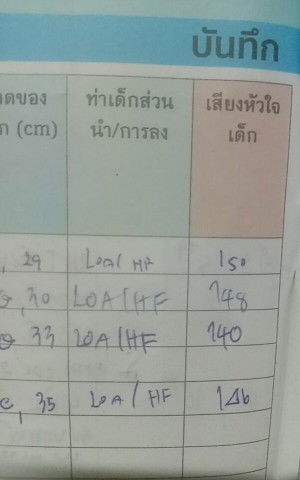 บันทึก
ดของ ท่าเด็กส่วน เสียงหัวใจ
ก (cm) นำ/การลง เด็ก
, 29 LOA/ HF 150
, 30 LOA/HF 148
33 LOA/HF 140
, 35 LOA/ HF 146